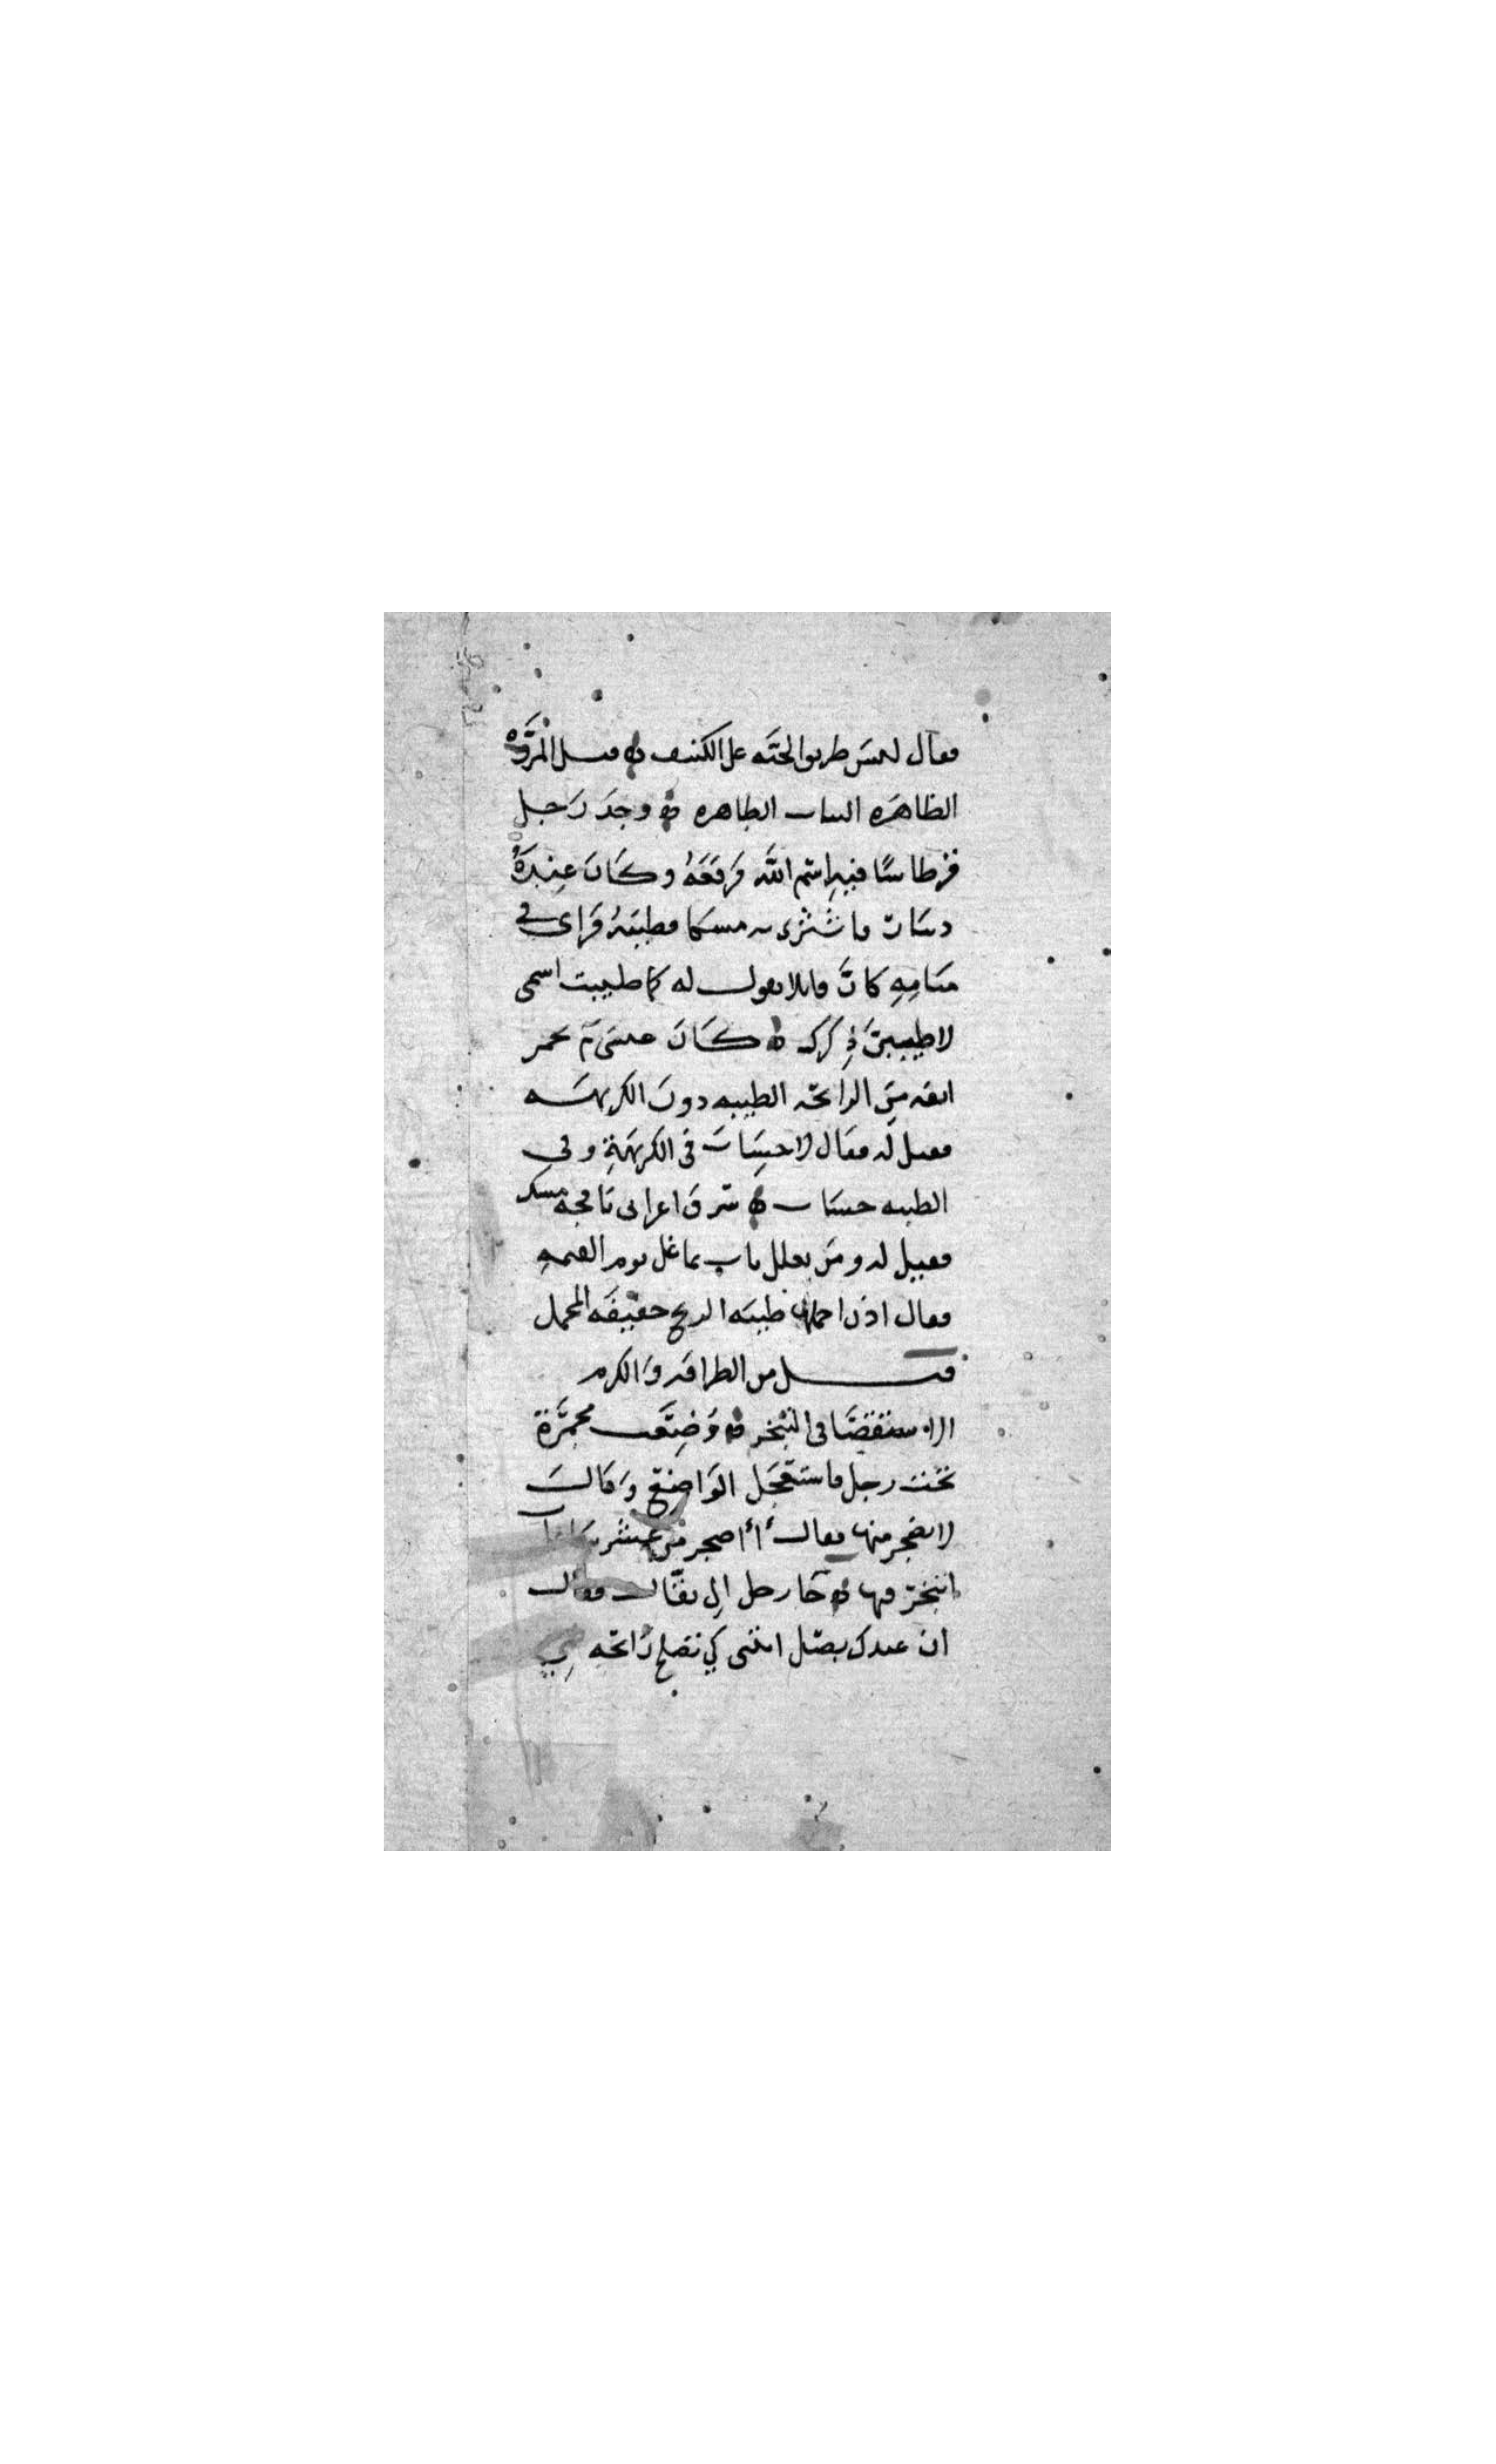 فقال ليس طريق الجنة على الكنف ه قيل المروة
الظاهرة الثياب الطاهرة ه وجد رجل
قرطاسًا فيه اسم الله فرفعه وكان عنده
دينار فاشترى به مسكا فطيبه فراى في
منامه كانّ قايلا يقول له كما طيبت اسمى
لاطيبنّ ذكرك ه كان عيسى يخمر
انفه من الرايحة الطيبة دون الكريهة
فقيل له فقال لا حساب فى الكريهة وفي
الطيبة حساب ه سرق اعرابى نافجة مسك
فقيل له ومن يغلل يات بما غل يوم القيمة
فقال اذن احملها طيبة الريح خفيفة المحمل
قيل من الظرافة والكرم
الاستقصا فى التبخر ه وُضعت مجمرة
تحت رجل فاستعجل الواضع وقال
لا تضجر منها فقال أأضجر من
اتبخر فيها ه جا رجل الى بقال فقال
ان عندك بصل ائتنى كي تصلح رائحة